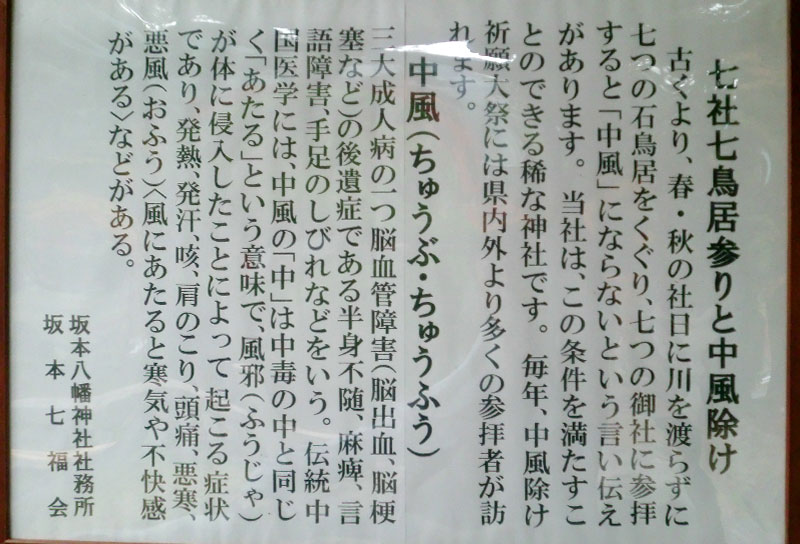 七社七鳥居参りと中風除け
古くより、春・秋の社日に川を渡らずに
七つの石鳥居をくぐり、七つの御社に参拝
すると「中風」にならないという言い伝え
があります。 当社は、この条件を満たすこ
とのできる稀な神社です。 毎年、中風除け
祈願大祭には県内外より多くの参拝者が訪
れます。
中風(ちゅうぶ・ちゅうふう)
三大成人病の一つ脳血管障害(脳出血、脳梗
塞など)の後遺症である半身不随、麻痺、言
語障害、手足のしびれなどをいう。 伝統中
国医学には、中風の「中」は中毒の中と同じ
く「あたる」という意味で、風邪(ふうじゃ)
が体に侵入したことによって 起こる症状
であり、発熱、発汗、咳、肩のこり、頭痛、悪寒、
悪風(おふう)〈風にあたると寒気や不快感
がある〉などがある。
坂本八幡神社社務所
坂本七福会